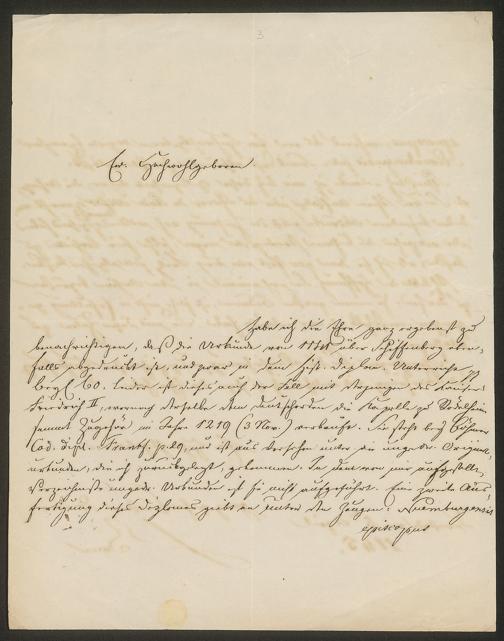 3
Ew. Hochwohlgeboren.
habe ich die Ehre ganz ergebenst zu
benachrichtigen, daß die Urkunde von über Schiffenberg eben-
falls abgedruckt ist, und zwar in dem hist. diplom. Unterricht p.
60. Leider ist dieses auch der Fall mit des Kaisers
Friedrich II, wornach derselbe dem deutschorden die Kapelle zu Rödelheim
sammt Zugehör im Jahr 1219 (3 Nov.) Sie steht bey Böhmer
Cod. dipl. Francf. p. 29, und ist aus Versehen unter die Original-
urkunden, die ich zurückgelegt, gekommen. In dem von mir aufgestellten
Verzeichnisse Urkunden ist sie nicht aufgeführt. Eine zweite Aus-
fertigung dieses Diplomes giebt an unter den Zeugen: Nuemburgensis
episcopus